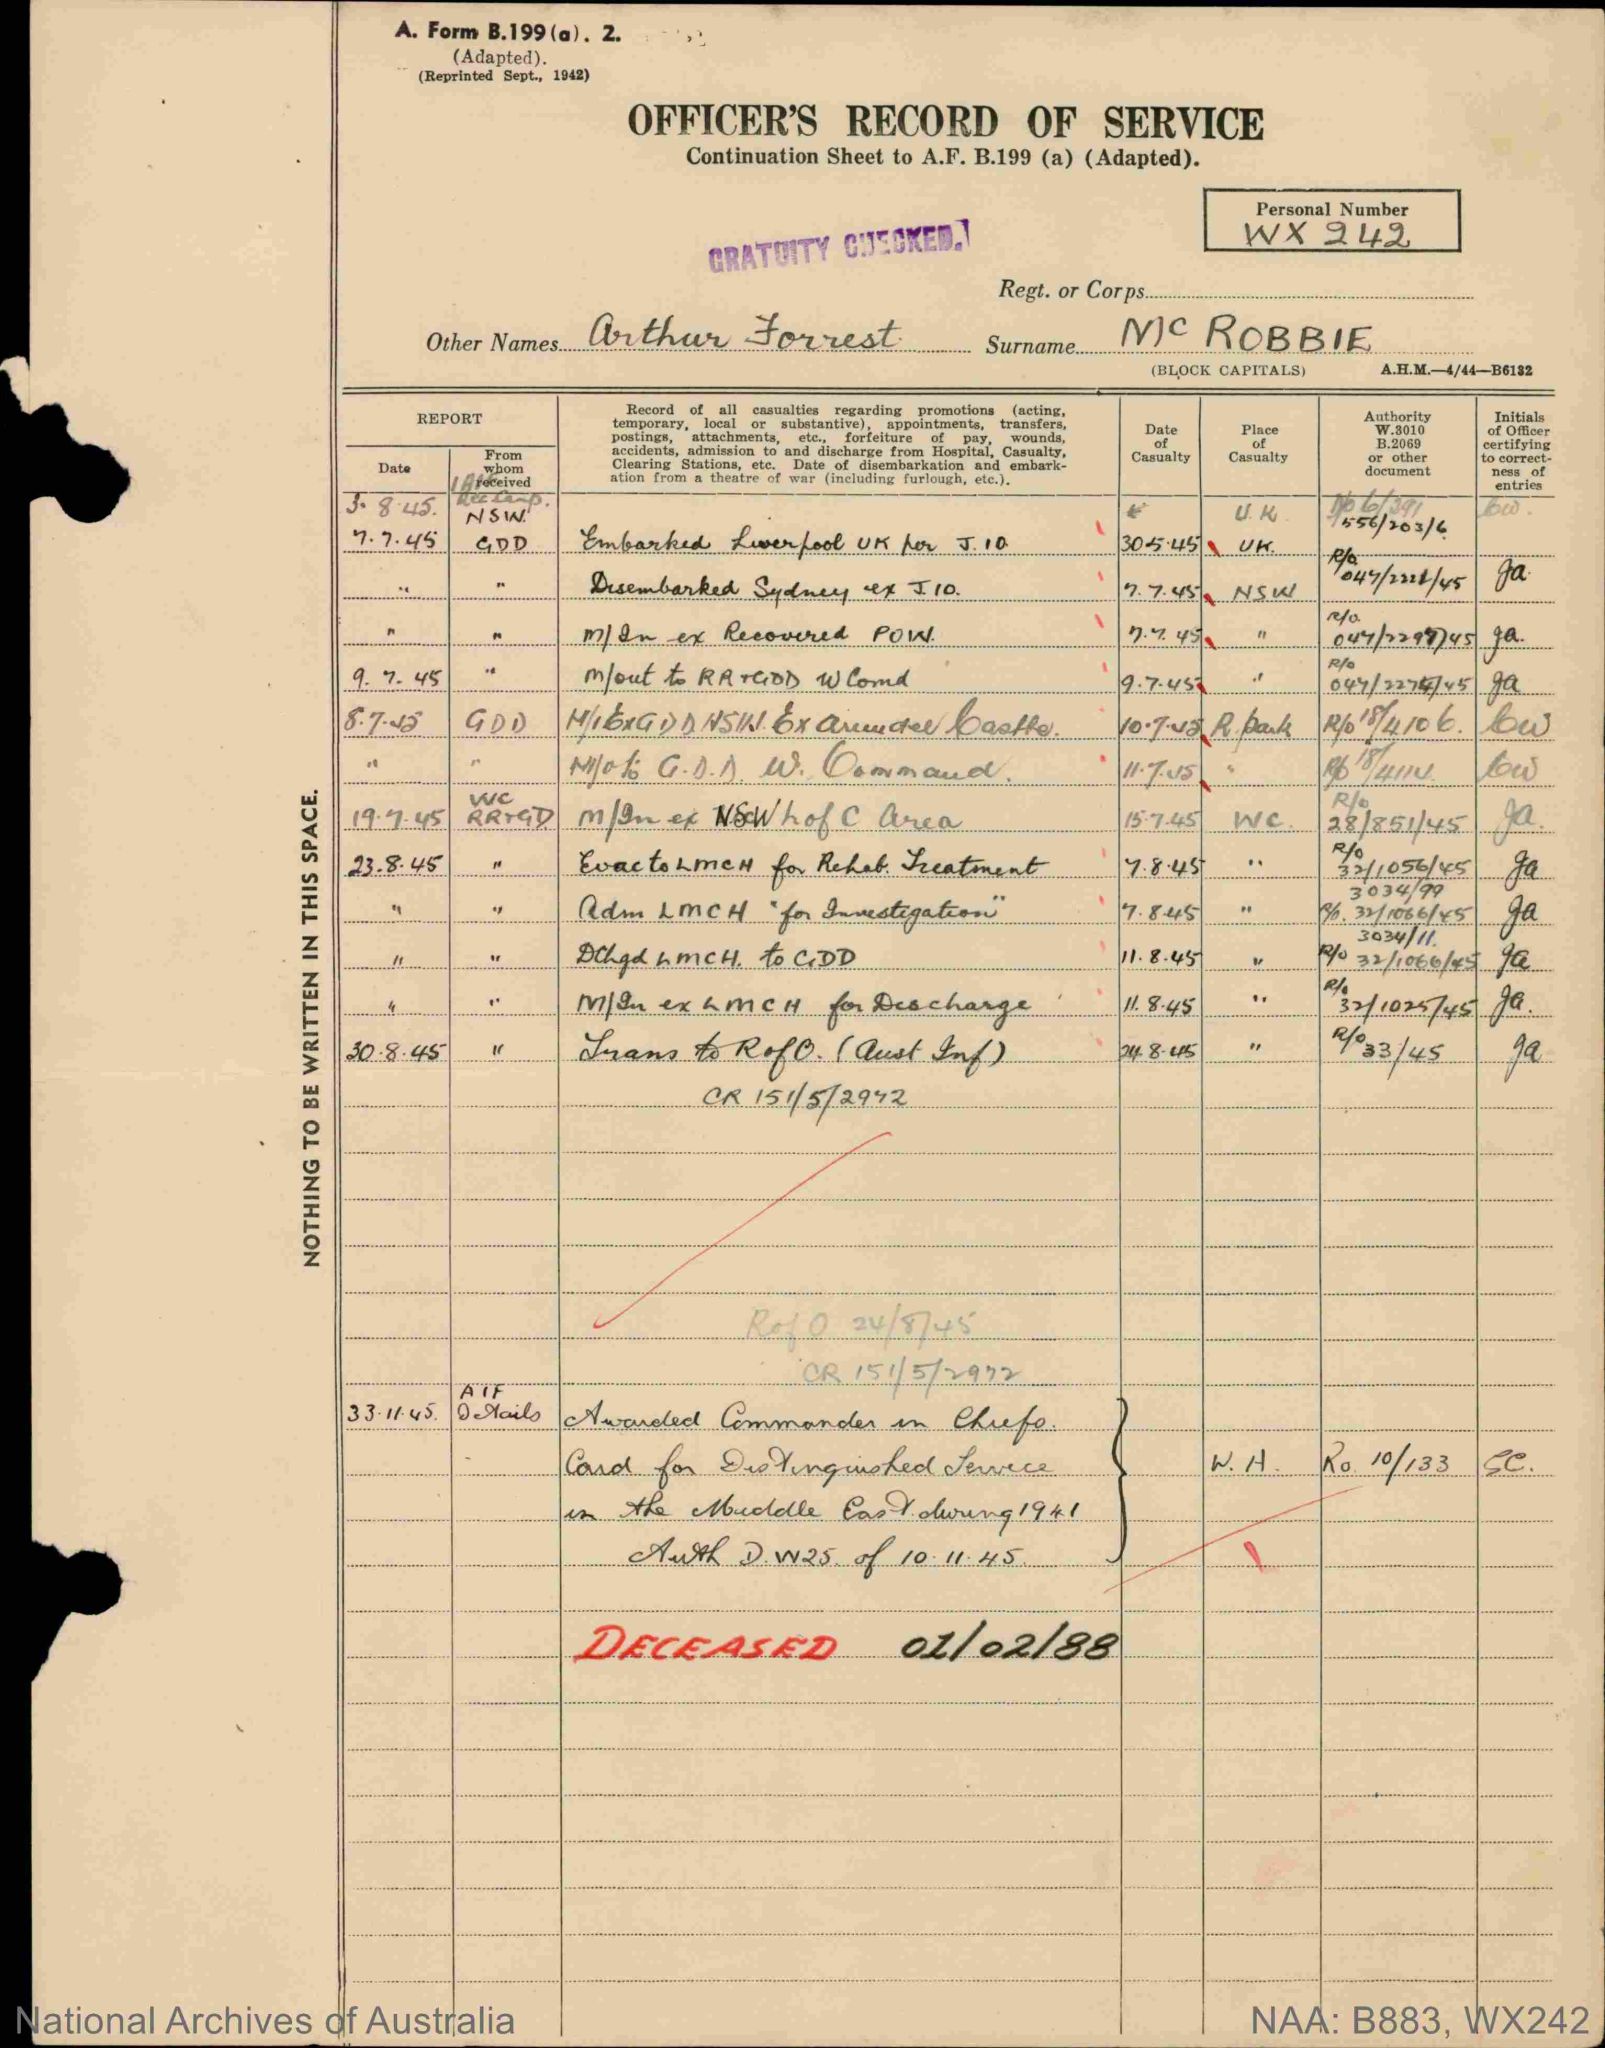 A. Form B.199 (a). 2.
(Adapted).
(Reprinted Sept., 1942)
OFFICER'S RECORD OF SERVICE
Continuation Sheet to A.F. B.199 (a) (Adapted).
Personal Number
WX 242
GRATUITY CHECKED.
Regt. or Corps
Other Names Arthur Forrest Surname Mc ROBBIE
(BLOCK CAPITALS) A.H.M.—4/44—B6132
REPORT
Date
From whom received
Record of all casualties regarding promotions (acting,
temporary, local or substantive), appointments, transfers,
postings, attachments, etc., forfeiture of pay, wounds,
accidents, admission to and discharge from Hospital, Casualty,
Clearing Stations, etc. Date of disembarkation and embark-
ation from a theatre of war (including furlough, etc.).
Date of Casualty
Place of Casualty
Authority W.3010 B.2069 or other document
Initials of Officer certifying to correct-ness of entries
3. 8.45. Rec Camp. U.K.
NSW. 556/203/6
7.7.45 GDD Embarked Liverpool UK per J.10 30.5.45 UK.
" " Disembarked Sydney ex J.10. 7.7.45 NSW R/o 047/2221/45 ga
" " M/In ex Recovered POW. 7.7.45 " R/o 047/2297/45 ga.
9.7.45 " M/out to RR+GDD W Comd 9.7.45 " R/o 047/2274/45 ga
8.7.45 GDD M/I Ex GDD NSW. Ex Arundel Castle. 10.7.45 R. Park R/o 18/4106.
" " M/o to G.D.D. W. Command. 11.7.45 " R/o 18/4114.
19.7.45 WC RR+GD M/In ex NSW L of C Area 15.7.45 WC. R/o 28/851/45 ga.
23.8.45 " Evac to LMCH for Rehab. Treatment 7.8.45 " R/o 32/1056/45 ga
" " Adm LMCH "for Investigation" 7.8.45 " 3034/99 R/o. 32/1066/45 ga
" " DChgd LMCH. to GDD 11.8.45 " 3034/11. R/o 32/1066/45 ga
" " M/In ex LMCH for Discharge 11.8.45 " R/o 32/1025/45 ga.
30.8.45 " Trans to R of O. (Aust Inf) 24.8.45 " R/o 33/45 ga
CR 151/5/2972
R of O 24/8/45
CR 151/5/2972
33.11.45. AIF Details Awarded Commander in Chiefs.
Card for Distinguished Service W.H. Ro. 10/133 SC.
in the Middle East during 1941
Auth D.W25. of 10.11.45.
DECEASED 01/02/88
NOTHING TO BE WRITTEN IN THIS SPACE.
National Archives of Australia NAA: B883, WX242